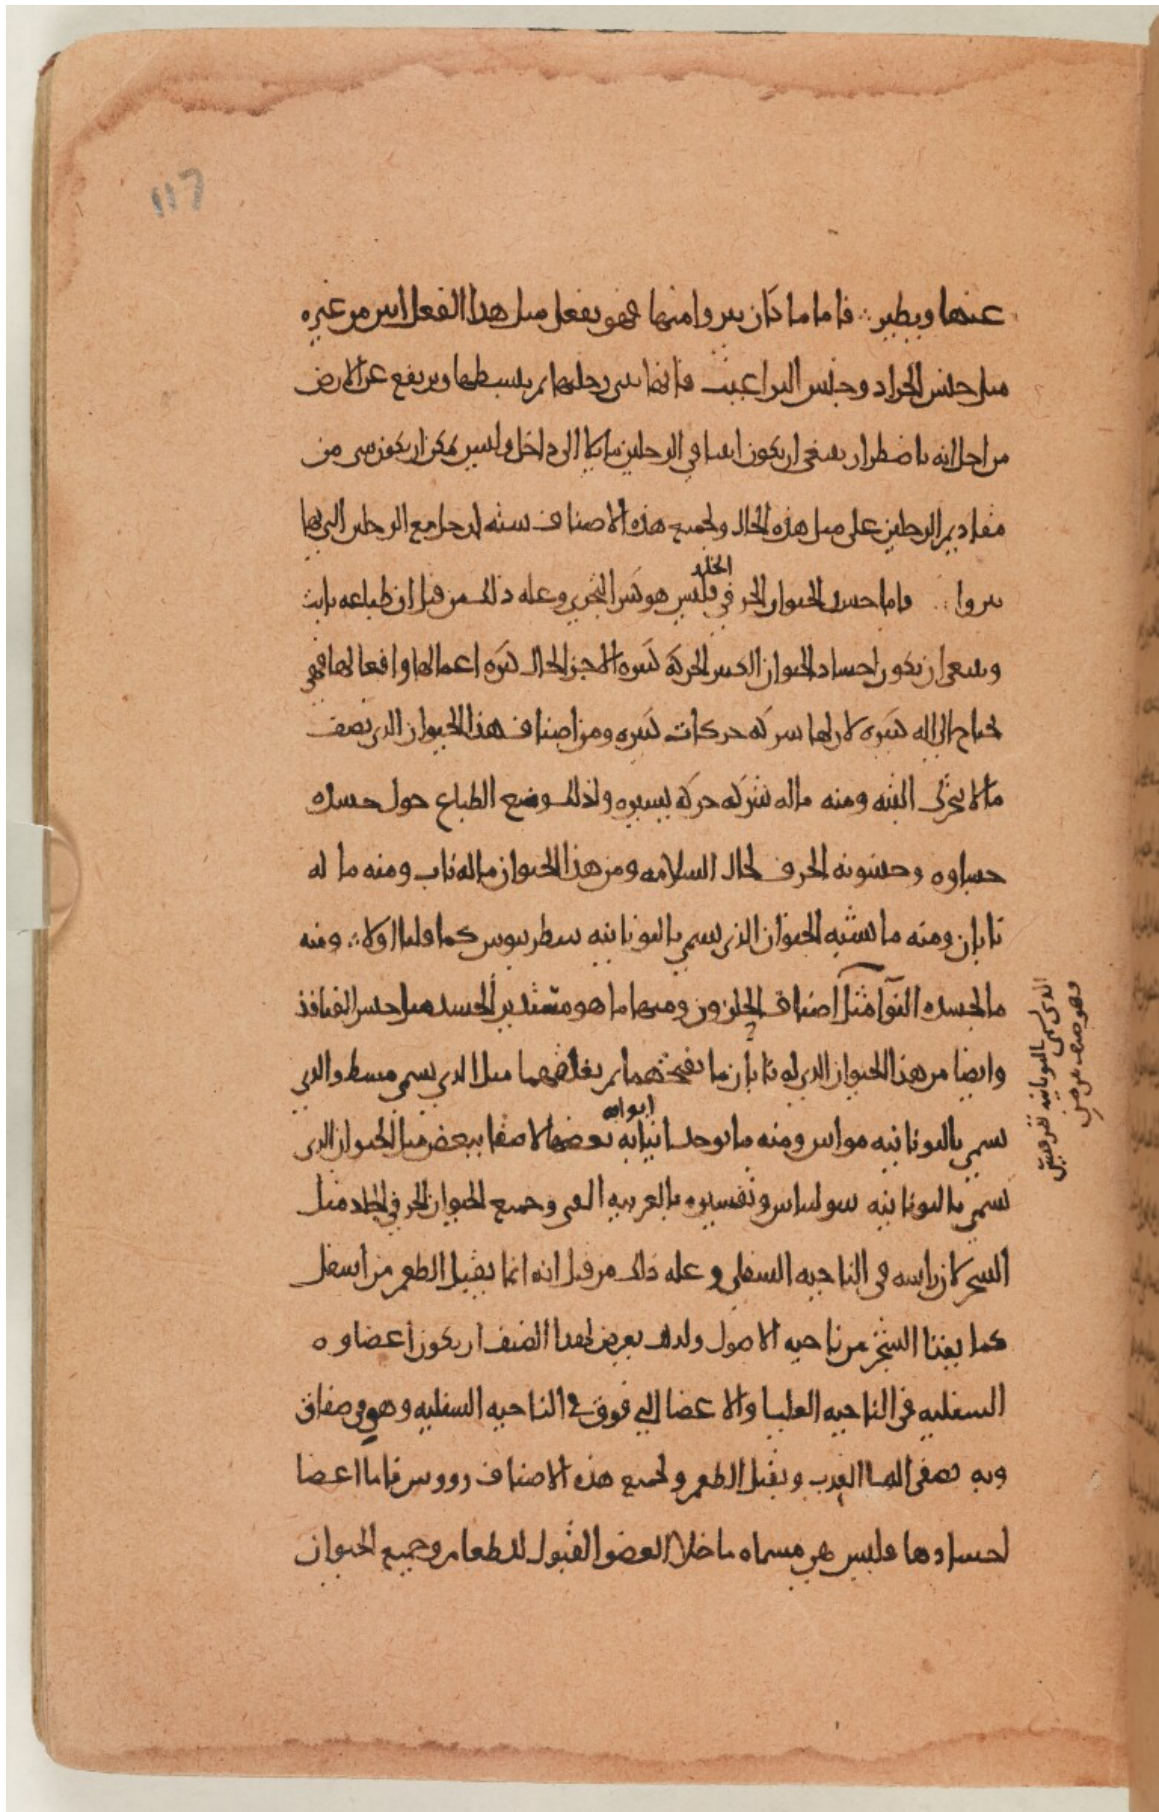 عنها ويطير ∴ فاما ما كان ينزوا منها فهو يفعل مثل هذا الفعل اكثر من غيره
مثل جنس الجراد وجنس البراغيث فانها تثنى رجليها ثم يبسطها ويرتفع عن الارض
من اجل انه باضطرار ينبغى ان يكون انثنا فى الرجلين مايلا الى داخل وليس يمكن ان يكون شى من
مقاديم الرجلين على مثل هذه الحال ولجميع هذه الاصناف سته ارجل مع الرجلين التى بها
ينزوا ∴ فاما جسد الحيوان الخزفى الجلد فليس هو كثير التجزى وعله ذلك من قبل ان طباعه ثابت
وينبغى ان تكون اجساد الحيوان الكثير الحركه كثيره الاجزا لحال كثره اعمالها وافعالها فهى
تحتاج الى اله كثيره لان لها شركه حركات كثيره ومن اصناف هذا الحيوان الذى نصف
ما لا يتحرك البته ومنه ما له شركه حركه يسيره ولذلك وضع الطباع حول جسده
جساوه وخشونه الخزف لحال السلامه ومن هذا الحيوان ما له باب ومنه ما له
بابان ومنه ما يشبه الحيوان الذى يسمى باليونانيه كما قلنا اولا ∴ ومنه
ما لجسده التوا مثل اصناف الحلزون ومنها ما هو مستدير الجسد مثل جنس القنافذ
وايضا من هذا الحيوان الذى له بابان ما يفتحهما ثم يغلقهما مثل الذى يسمى مسطو والذى
يسمى باليونانيه مواس ومنه ما توجد ابوابه بعضها لاصقا ببعض مثل الحيوان الذى
يسمى باليونانيه وتفسيره بالعربيه وجميع الحيوان الخزفى الجلد مثل
الشجر لان راسه فى الناحيه السفلى وعله ذلك من قبل انه انما يقبل الطعم من اسفل
كما يفعل الشجر من ناحيه الاصول ولذلك يعرض لهذا الصنف ان يكون اعضاوه
السفليه فى الناحيه العليا والاعضا التى فوق فى الناحيه السفليه وهو فى صفاق
وبه يصفى الما العذب ويقبل الطعم ولجميع هذه الاصناف رووس فاما اعضا
اجسادها فليس هى مسماه ما خلا العضو القبول للطعام وجميع الحيوان
الذى يسمى باليونانيه
وهو صنف من